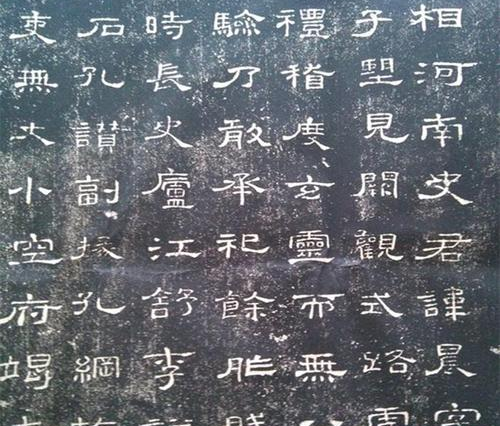 相河南史君諱晨
子望見闕觀式路
禮稽度玄靈而無
驗乃敢承祀餘胙
時長史廬江舒李
石孔讃副掾孔綱
吏無大小空府竭